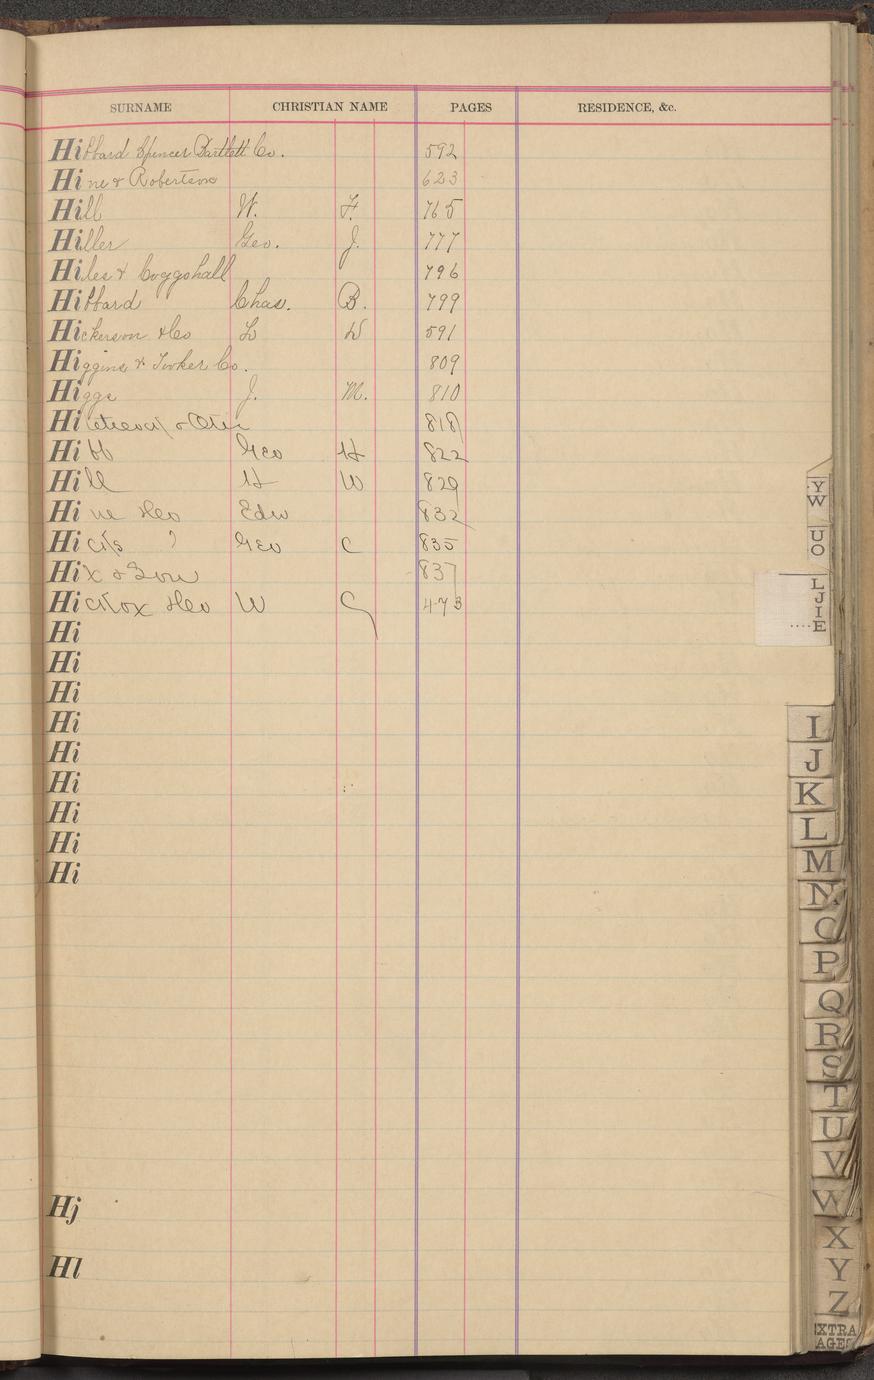 SURNAME CHRISTIAN NAME PAGES RESIDENCE, &c.
Hibbard Spencer Bartlett Co. 592
Hine & Robertson 623
Hill W. F. 765
Hiller Geo. J. 777
Hiles & Coggshall 796
Hibbard Chas. B. 799
Hickerson & Co L W 591
Higgins & Tooker Co. 809
Higgs J. M. 810
Hi & 818
Hibb Geo H 822
Hill H W 829
Hine & Co Edw 832
Hicks ? Geo C 835
Hix & Son 837
Hickox & Co W C 473
Hi
Hi
Hi
Hi
Hi
Hi
Hi
Hi
Hi
Hj
Hl
Y
W
U
O
L
J
I
E
I
J
K
L
M
N
O
P
Q
R
S
T
U
V
W
X
Y
Z
EXTRA
AGES